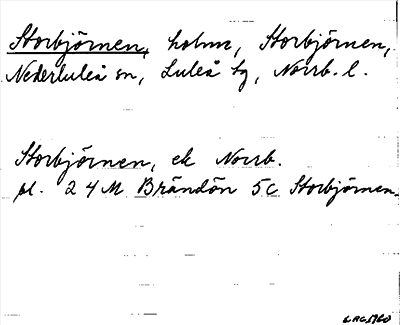 Storbjörnen, holme, Storbjörnen,
Nederluleå sn, Luleå tg, Norrb. l.
Storbjörnen, ek Norrb.
pl. 24M Brändön 5c Storbjörnen.